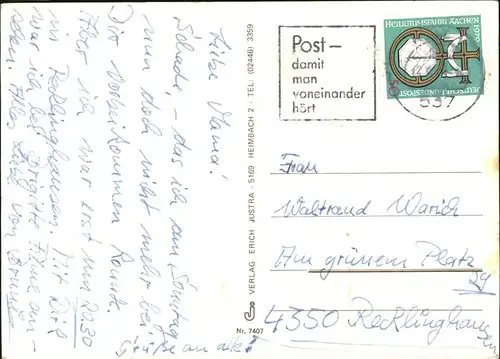 Liebe Mama!
Schade, - das ich am Sonntag
nun doch nicht mehr bei
Dir vorbeikommen konnte.
Aber ich war erst um 20.30
in Recklinghausen. Mit
war ich bei Brigitte Filme an-
sehen. Alles Liebe von
Grüße an alle!
VERLAG ERICH JUSTRA · 5169 HEIMBACH 2 · TEL. (02446) 3359
Nr. 7407
Post -
damit
man
voneinander
hört
537
HEILIGTUMSFAHRT AACHEN
1979
DEUTSCHE BUNDESPOST
Frau
Waltraud Warich
Am grünem Platz
4350 Recklinghausen